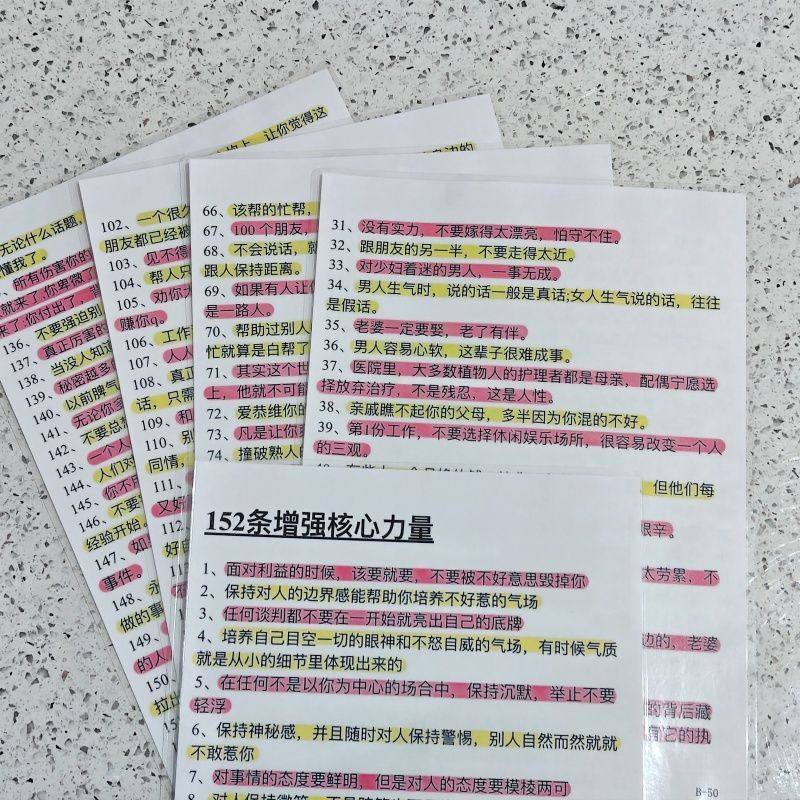 152条增强核心力量
1、面对利益的时候，该要就要，不要被不好意思毁掉你
2、保持对人的边界感能帮助你培养不好惹的气场
3、任何谈判都不要在一开始就亮出自己的底牌
4、培养自己目空一切的眼神和不怒自威的气场，有时候气质
就是从小的细节里体现出来的
5、在任何不是以你为中心的场合中，保持沉默，举止不要
轻浮
6、保持神秘感，并且随时对人保持警惕，别人自然而然就就
不敢惹你
7、对事情的态度要鲜明，但是对人的态度要模棱两可
31、没有实力，不要嫁得太漂亮，怕守不住。
32、跟朋友的另一半，不要走得太近。
33、对少妇着迷的男人，一事无成。
34、男人生气时，说的话一般是真话;女人生气说的话，往往
是假话。
35、老婆一定要娶，老了有伴。
36、男人容易心软，这辈子很难成事。
37、医院里，大多数植物人的护理者都是母亲，配偶宁愿选
择放弃治疗，不是残忍，这是人性。
38、亲戚瞧不起你的父母，多半因为你混的不好。
39、第1份工作，不要选择休闲娱乐场所，很容易改变一个人
的三观。
但他们每
艰辛。
太劳累，不
边的，老婆
的背后藏
它的执
B-50
66、该帮的忙帮，
67、100个朋友，
68、不会说话，就
跟人保持距离。
69、如果有人让你
是一路人。
70、帮助过别人
忙就算是白帮了
71、其实这个世
上，他就不可能
72、爱恭维你的
73、凡是让你
74、撞破熟人的
102、一个很久
朋友都已经被
103、见不得
104、帮人只
105、劝你
赚你q。
106、工作
107、人人
108、真正
话，只需
109、和
110、别
同情，
111
又好
112
好自
113
无论什么话题，
懂我了。
所有伤害你的
就来了:你卑微了
来了:你付出了，我
136、不要强迫别
137、真正厉害的
138、当没人知道
139、秘密越多
140、以前脾气
141、无论你多
142、不要总
143、一个人
144、人们对
145、你不用
146、不要
经验开始。
147、如
事件。
148、永
做的事
149、
的人
150
拉出
让你觉得这